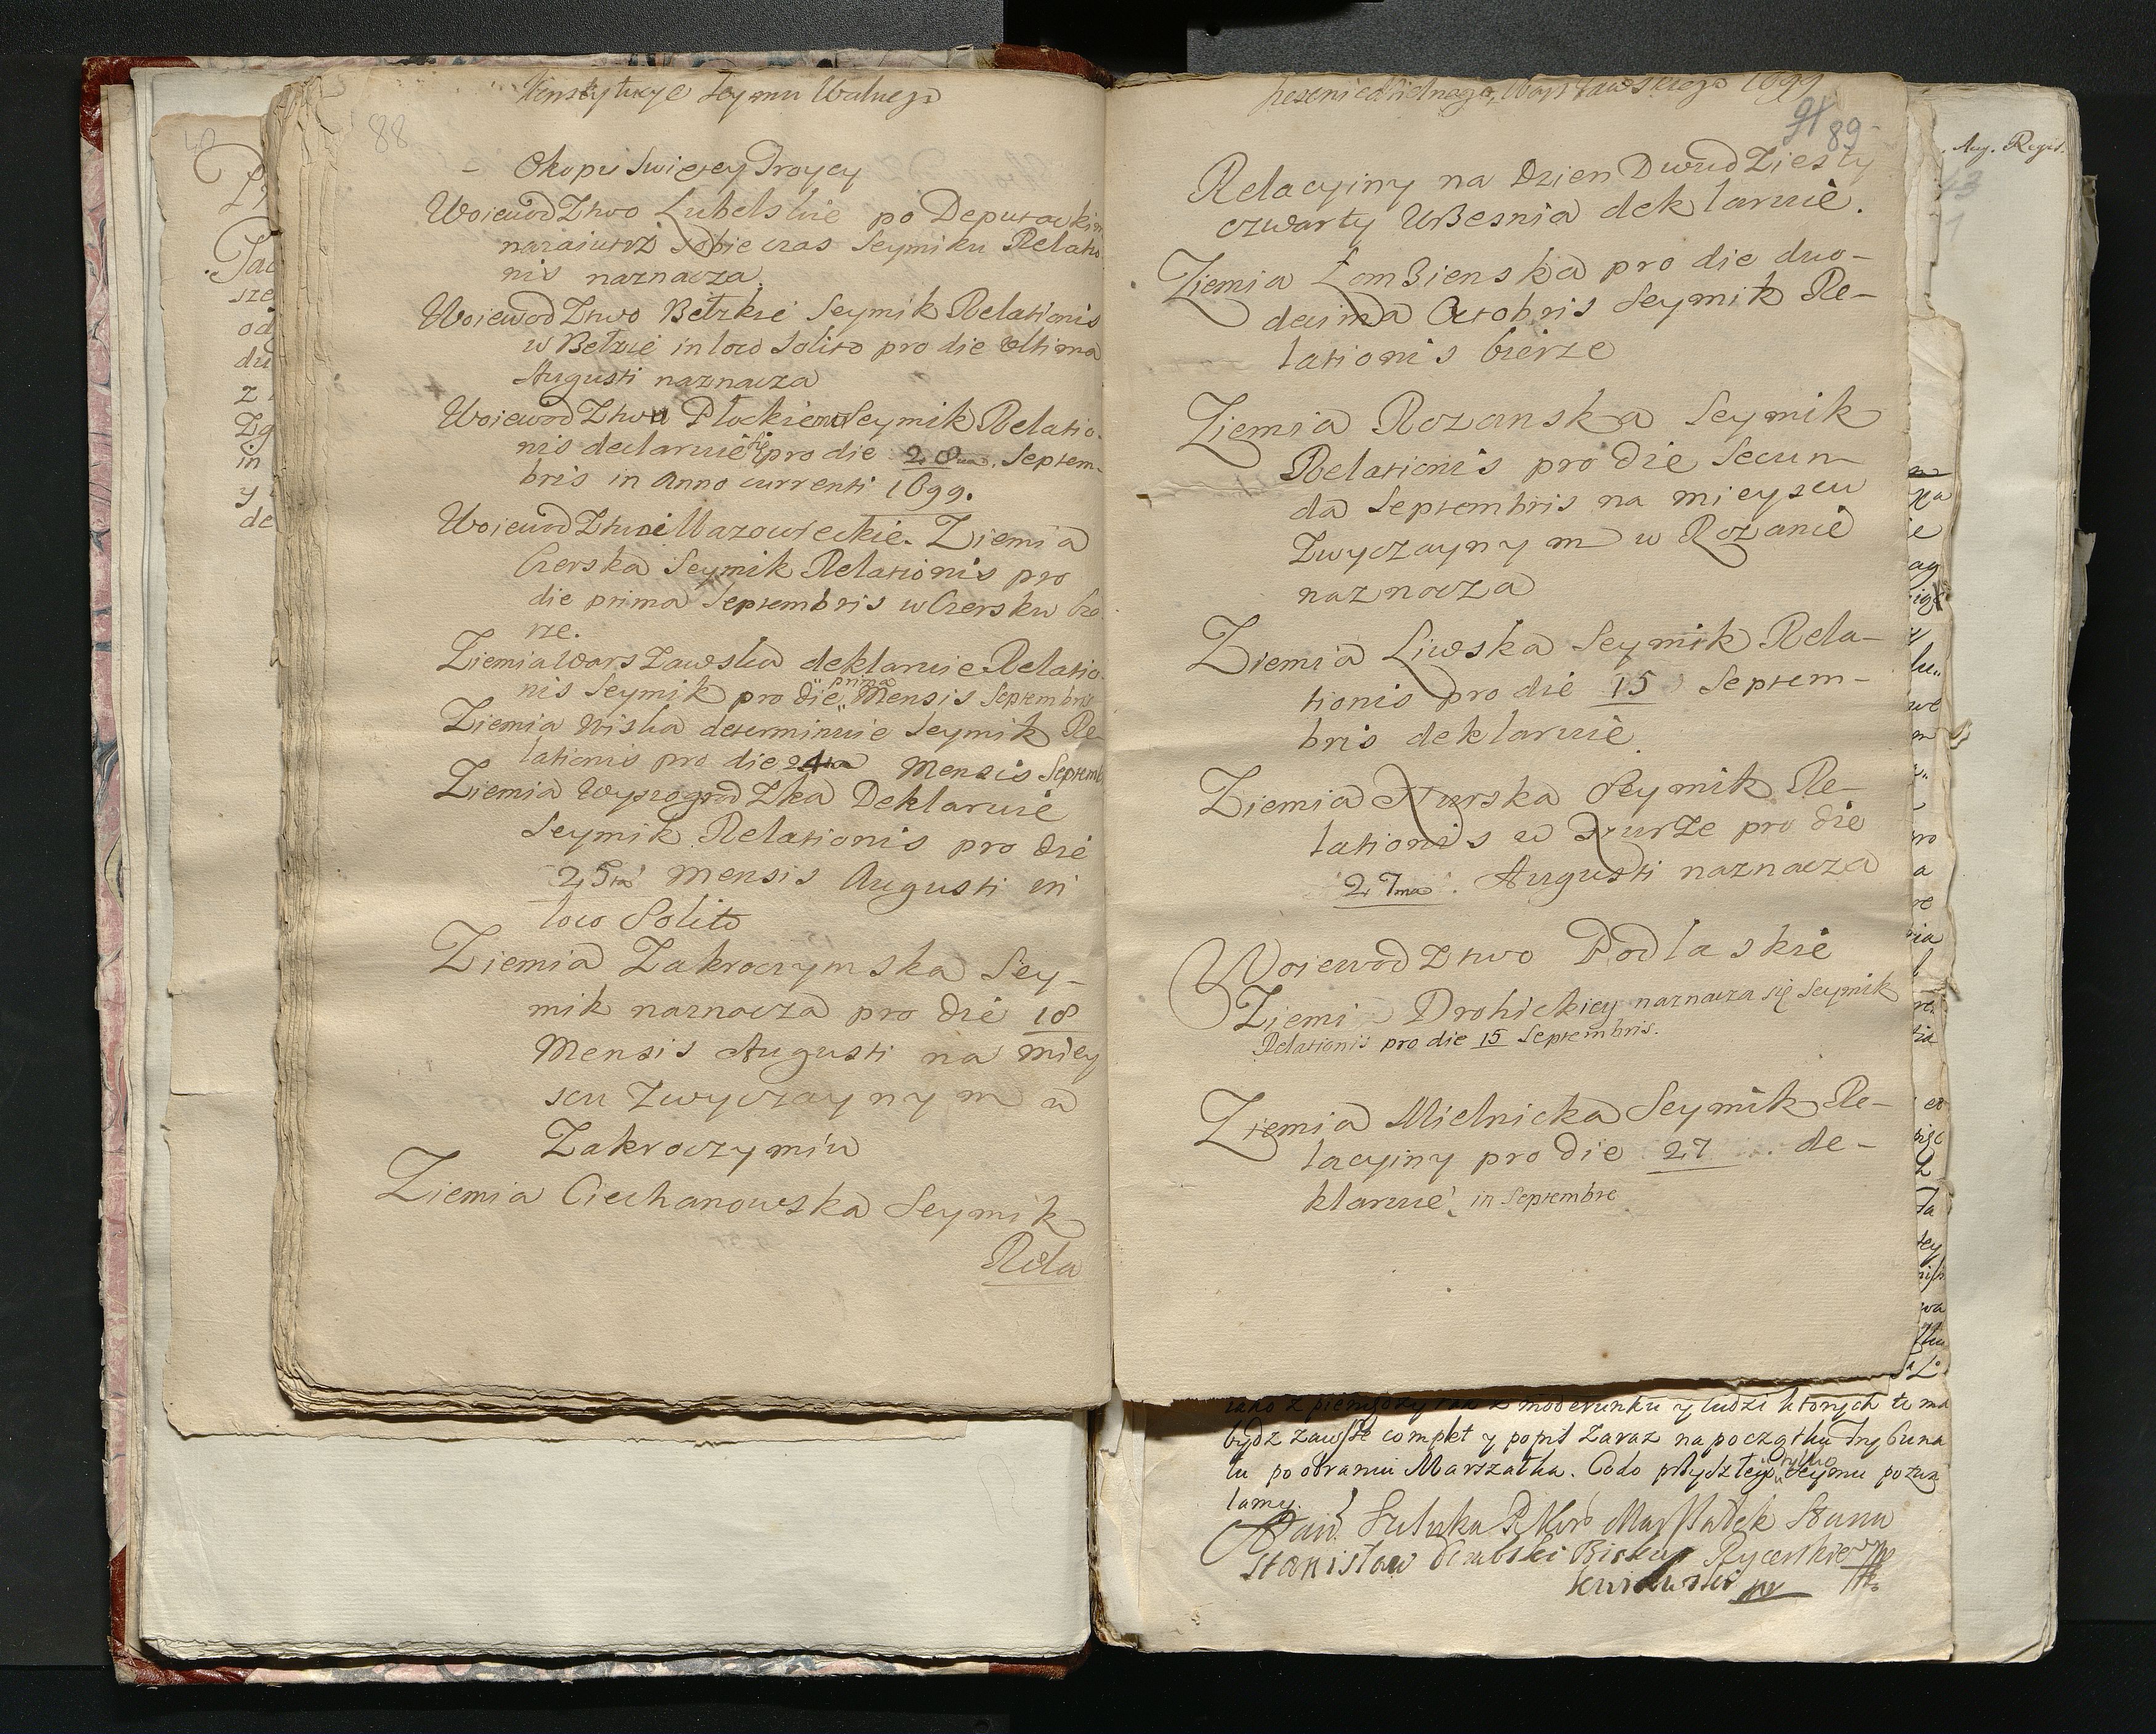 Konstytucye Seymu Walnego
88
Okopu Swiętey Troycy
Woiewodztwo Lubelskie po Deputackim
nazaiutrz sobie czas Seymiku Relatio
nis naznacza.
Woiewodztwo Bełzkie Seymik Relationis
w Bełzie in loco solito pro die ultima
Augusti naznacza
Woiewodztwo Płockie Seymik Relatio-
nis declaruie się pro die 28va. Septem-
bris in Anno currenti 1699.
Woiewodztwo Mazowieckie. Ziemia
Czerska Seymik Relationis pro
die prima Septembris w Czersku bie
rze.
Ziemia Warszawska deklaruie Relatio-
nis Seymik pro die prima Mensis Septembris
Ziemia Wiska determinuie Seymik Re-
lationis pro die 24ta Mensis Septemb
Ziemia Wyszogrodzka Deklaruie
Seymik Relationis pro die
25ta Mensis Augusti in
loco Solito
Ziemia Zakroczymska Sey-
mik naznacza pro die 18
Mensis Augusti na miey
scu zwyczaynym w
Zakroczymiu
Ziemia Ciechanowska Seymik
Rela
Warszawskiego 1699
91 89
Relacyiny na Dzien Dwudziesty
czwarty Wrzesnia deklaruie.
Ziemia Łomzienska pro die duo-
decima Octobris Seymik Re-
lationis bierze
Ziemia Rozanska Seymik
Relationis pro die Secun-
da Septembris na mieyscu
Zwyczaynym w Rozanie
naznacza
Ziemia Liwska Seymik Rela-
tionis pro die 15 Septem-
bris deklaruie
Ziemia Nurska Seymik Re-
lationis w Nurze pro die
27ma. Augusti naznacza
Woiewodztwo Podlaskie
Ziemi Drohickiey naznacza się Seymik
Relationis pro die 15 Septembris.
Ziemia Mielnicka Seymik Re-
lacyiny pro die 27 de-
klaruie in Septembre
Aug. Regis.
moderunku y ludzi ktorych te ma
bydz zawsze complet y popis zaraz na początku Trybuna
łu po obraniu Marszałka. Co do przyszłego tylko Seymu pozwa
lamy.
Marszałek
Stanisław Biskup